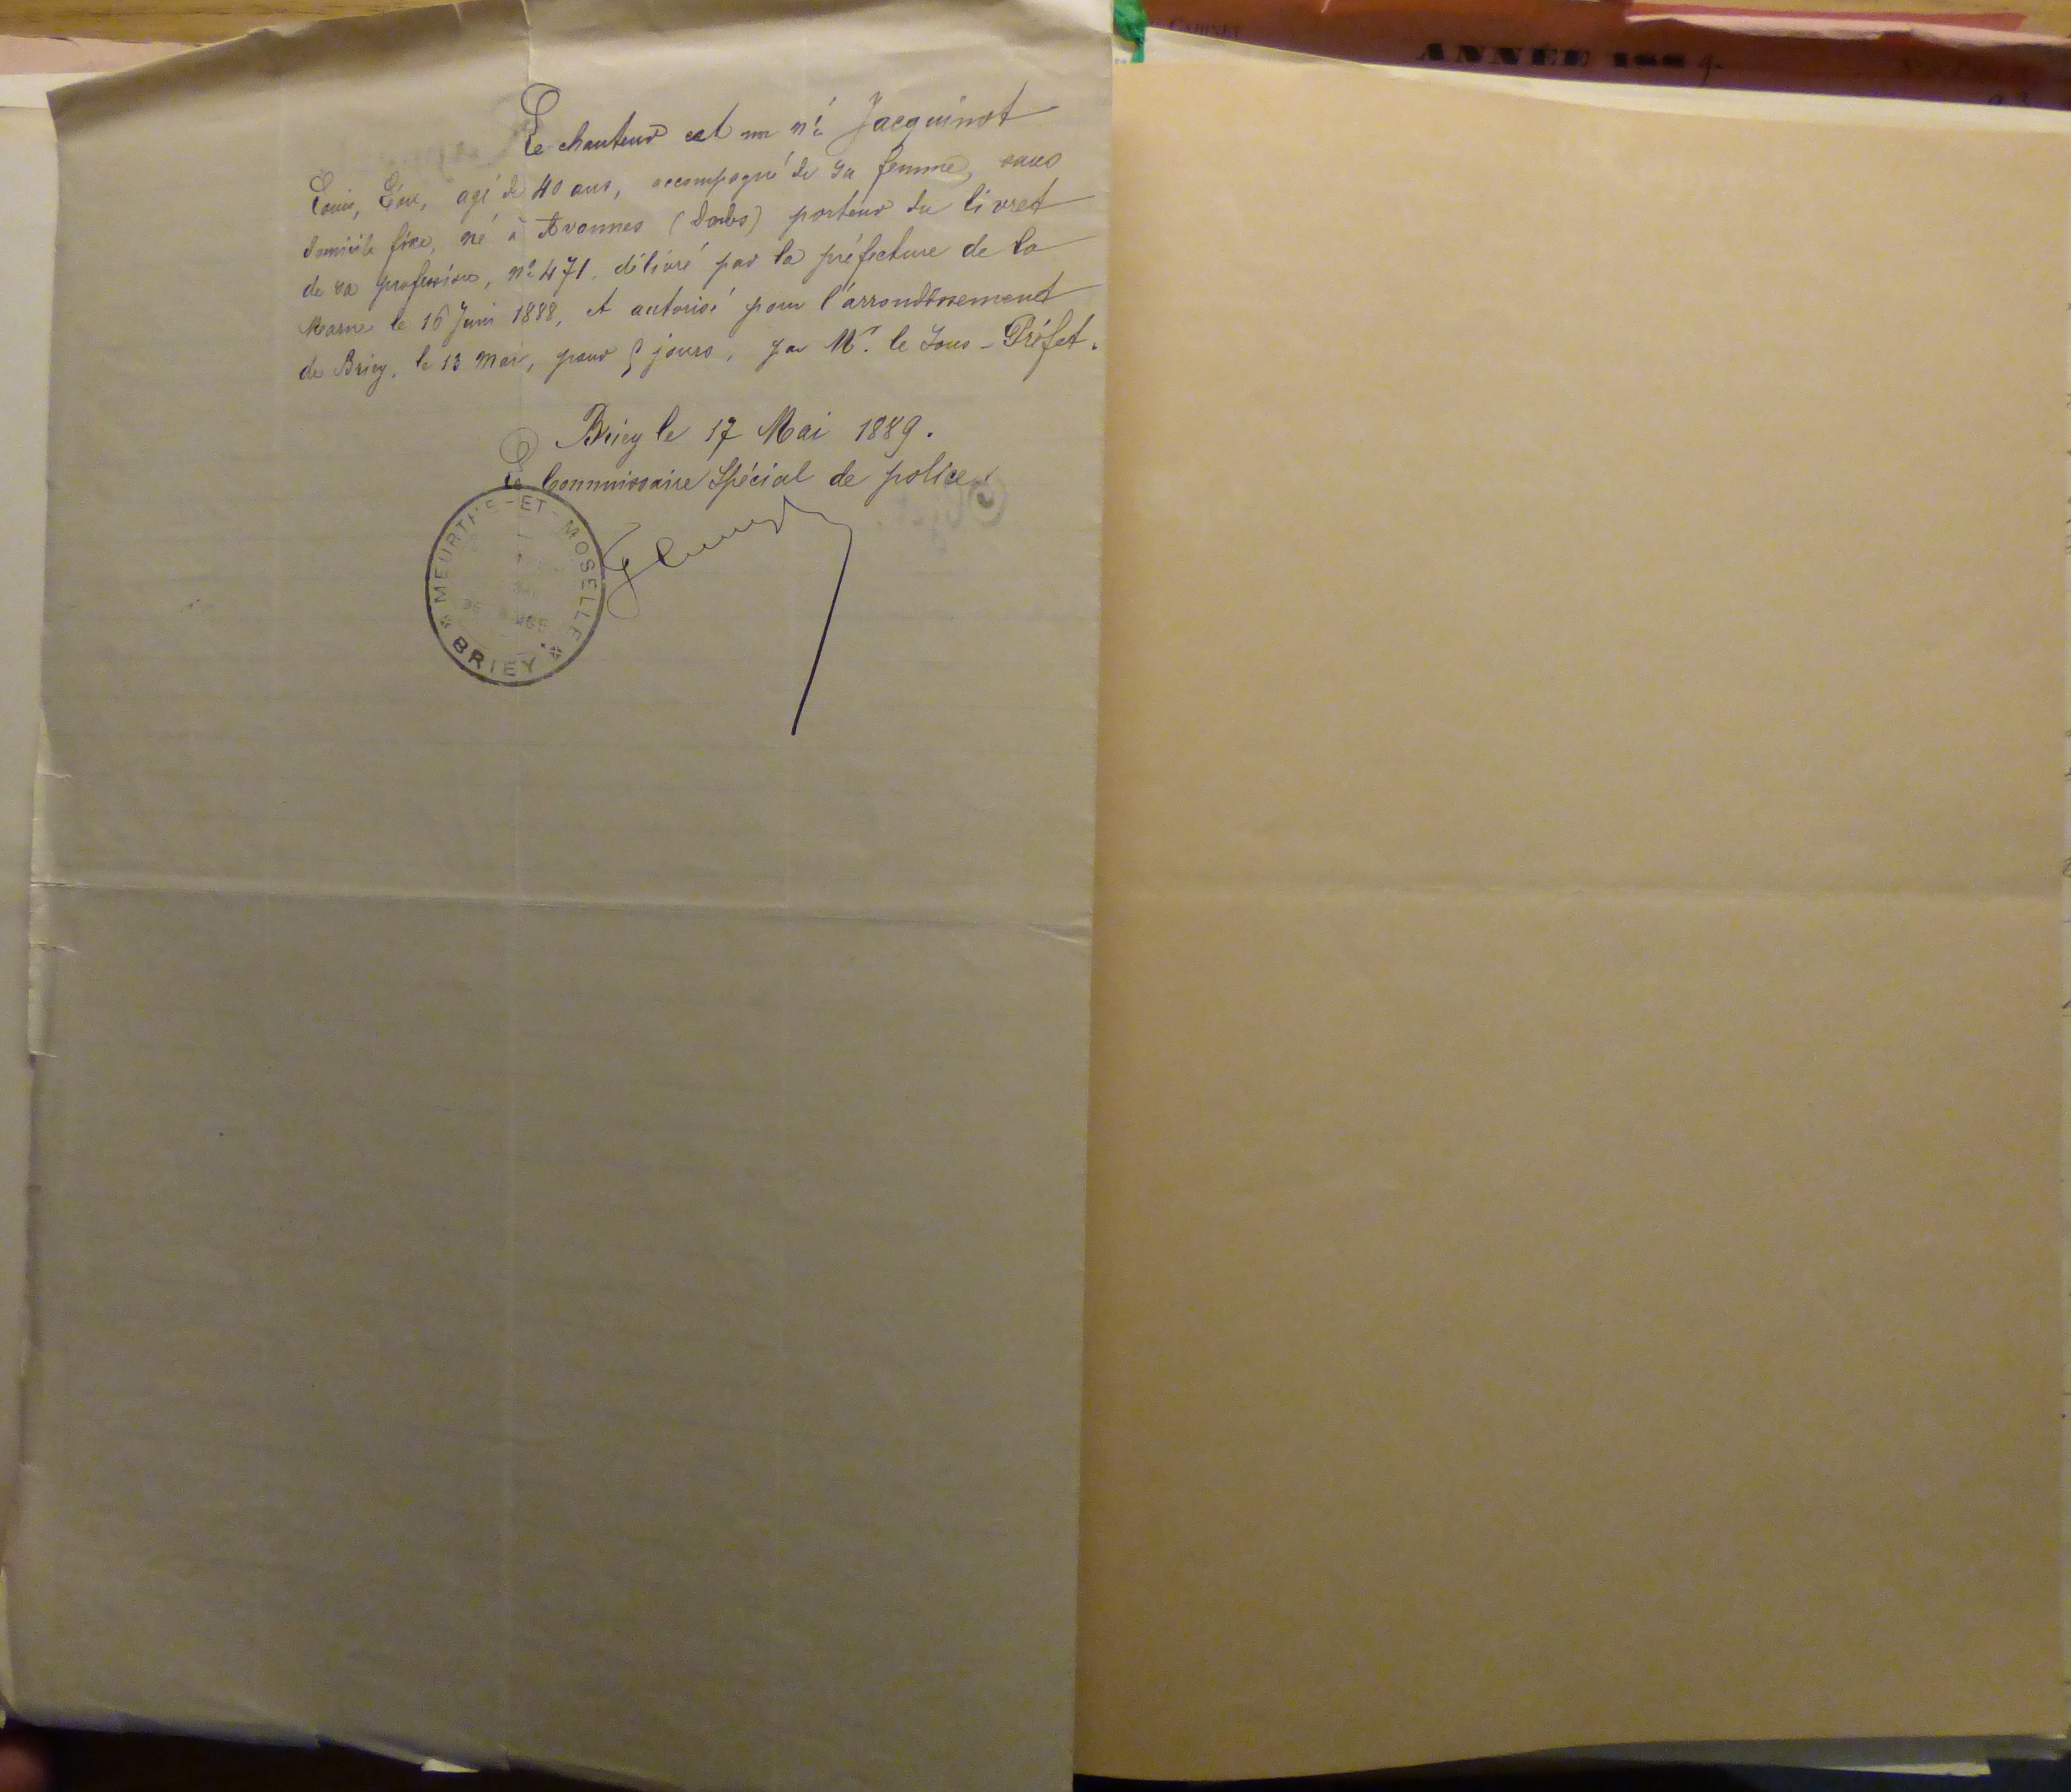 CABINET
ANNÉE 1889.
Le chanteur est un né Jacquinot
Louis, Léon, agé de 40 ans, accompagné de sa femme, sans
domicile fixe, né à Avannes (Doubs) porteur du livret
de sa profession, nº 471, délivré par la préfecture de la
Marne le 16 Juin 1888, et autorisé pour l'arrondissement
de Briey, le 13 Mai, pour 5 jours, par Mr. le Sous-Préfet.
Briey le 17 Mai 1889.
Le Commissaire Spécial de police.
MEURTHE-ET-MOSELLE
BRIEY